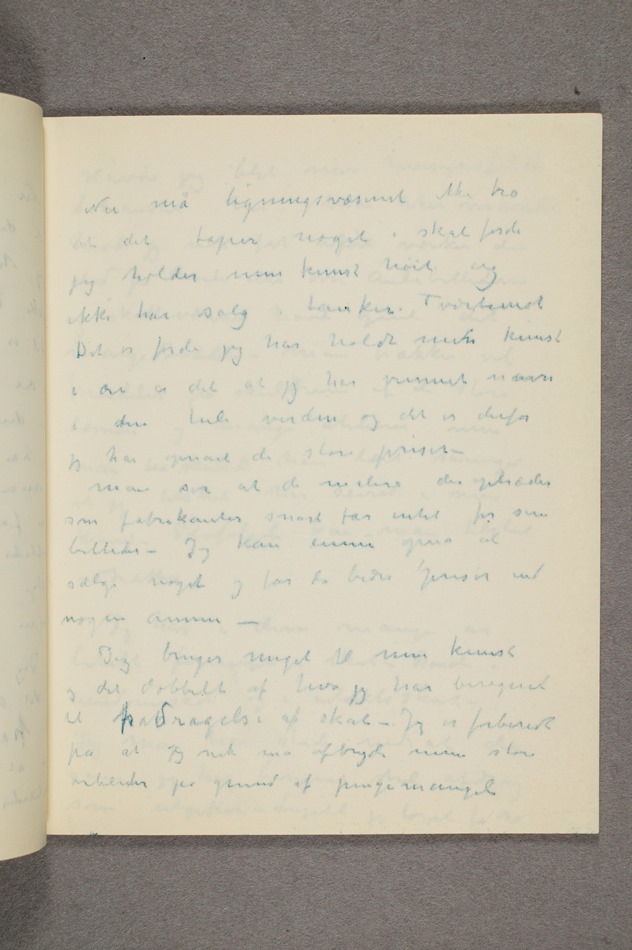 Nu må ligningsvæsenet ikke tro
at det taper noget i skat fordi
jeg holder min kunst høit og
ikke har salg i tanker. Tvertimot
Det er fordi jeg har holdt min kunst
i ære at jeg har vunnet navn
i den hele verden og det er derfor
jeg har opnået de store priser –
man ser at de malere der optræder
som fabrikanter snart får intet for sine
billeder – Jeg kan ennu opnå at
sælge noget og får da bedre priser end
nogen annen —
Jeg bruger meget til min kunst
og det dobbelt af hva jeg har beregnet
til fradragelse af skat – Jeg er forberedt
på at jeg nok må afbryde mine store
arbeider på grund af pengemangel